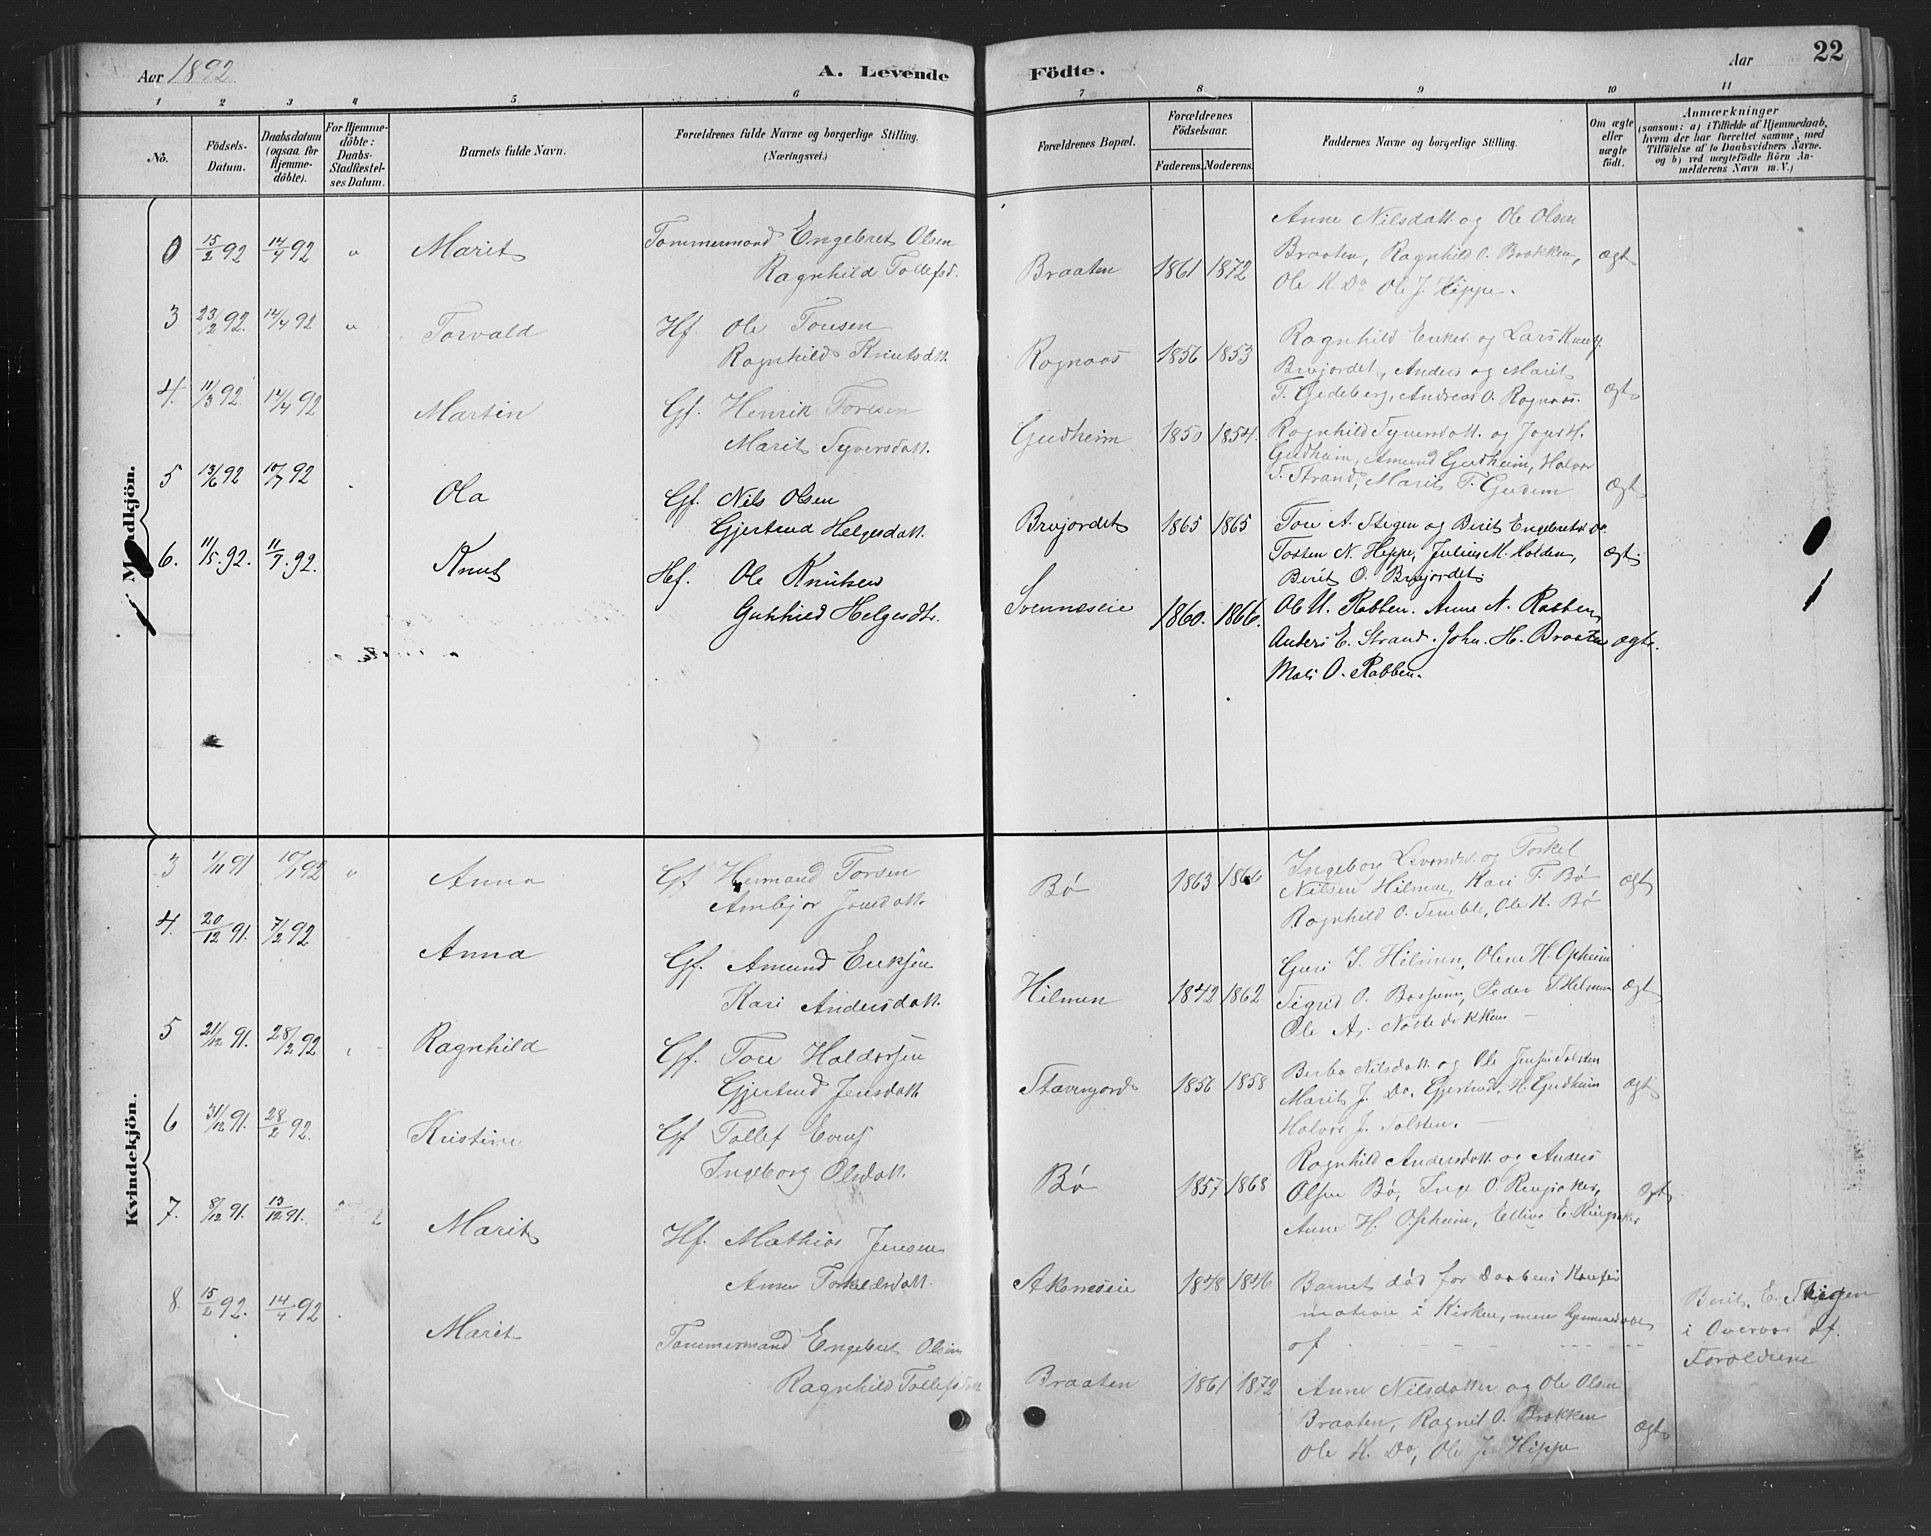 Aar 1892
A. Levende Födte.
Aar
22
1 2 3 4 5 6 7 8 9 10 11
No.
Födsels-Datum.
Daabsdatum (ogsaa for Hjemmedöbte).
For Hjemmedöbte: Daabs-Stadfæstelses Datum.
Barnets fulde Navn.
Forældrenes fulde Navne og borgerlige Stilling.
(Næringsvei.)
Forældrenes Bopæl.
Forældrenes Födselsaar.
Faderens. Moderens.
Faddernes Navne og borgerlige Stilling.
Om ægte eller uægte födt.
Anmærkninger
(saasom: a) i Tilfælde af Hjemmedaab,
hvem der har forrettet samme, med
Tilföielse af to Daabsvidners Navne.
og b) ved uægtefödte Börn An-
melderens Navn m.V.)
Mandkjön.
0 15/2 92 14/4 92 " Marit Tømmermand Engebret Olsen
Ragnhild Tollefsd.
Braaten 1861 1872
Anne Nilsdatt. og Ole Olsen
Braaten, Ragnhild O. Brakken,
Ole K. Do Ole J. Hippe.
ægt
3 23/2 92. 14/4 92 " Torvald Hf. Ole Toresen
Ragnhild Knutsdatt.
Rognaas 1856 1853
Ragnhild og Lars
Brujordet, Anders og Marit
T. Gedeberg, Andreas O. Rognaas.
ægt
4. 11/3 92. 14/4 92 Martin Gf. Henrik Toresen
Marit Syversdatt.
Gudheim 1850 1854.
Ragnhild Syversdatt. og
Gudheim, Amund Gudheim, Halvor
T. Strand, Marit T. Gudem
ægt
5 13/6 92 10/7 92 Ola Gf. Nils Olsen
Gjertrud Helgesdatt.
Brujordet 1865 1865
Tore A. Stegen og Berit Engebretsd. Do.
Tosten N. Hippe, Julius M. Holden,
Berit O. Brujordet
ægt.
6. 11/5. 92. 11/7. 92. Knut Hf. Ole Knutsen
Gunhild Helgesdtr.
Svennæseie 1860. 1866.
Ole U. Rabben. Anne N. Rabben,
Anders E. Strand. John. H. Braaten
Mari O. Rabben.
ægte.
Kvindekjön.
3 1/11 91 10/1 92 " Anna Gf Hermand Torsen
Ambjør Jonsdatt.
Bø 1863 1866
Ingeborg og Torkel
Nilsen Hilmen, Kari T. Bø
Ragnhild O. Semble, Ole K. Bø
ægt
4. 20/12 91. 7/2 92 Anna Gf. Amund Eriksen
Kari Andersdatt.
Hilmen 1842 1862
Guri T. Hilmen, Olene H. Opheim
Sigrid O. Peder T. Hilmen
Ole A.
ægt
5 21/12 91. 28/2 92 " Ragnhild Gf. Tore Haldorsen
Gjertrud Jensdatt.
Stavengjorde 1856 1858
Berbo Nilsdatt. og Ole Jensen Tolsten
Marit J. Do, Gjertrud H. Gudheim
Halvor J. Tolsten.
ægt
6 31/12 91. 28/2 92. Kristine Gf Tollef
Ingeborg Olsdatt.
Bø 1857 1868
Ragnhild Andersdatt. og Anders
Olsen Bø, Inge O. Ringsaker,
Anne H. Opheim, Elline E. Ringsaker
ægt
7. 8/12 91. 13/12 91. Marit Hf. Mathias Jensen
Anne Torkildsdatt.
Aksneseie 1848 1846
Barnet død før Daabens Konfir
mation i Kirken, men hjemmedøbt
af
Berit E. Skigen
i Overvær af
Forældrene
8. 15/2 92. 14/4 92 Marit Tømmermand Engebret Olsen
Ragnhild Tollefsdatt
Braaten 1861 1872
Anne Nilsdatter og Ole Olsen
Braaten, Ragnil O. Brakken
Ole K. Do, Ole J. Hippe
ægt